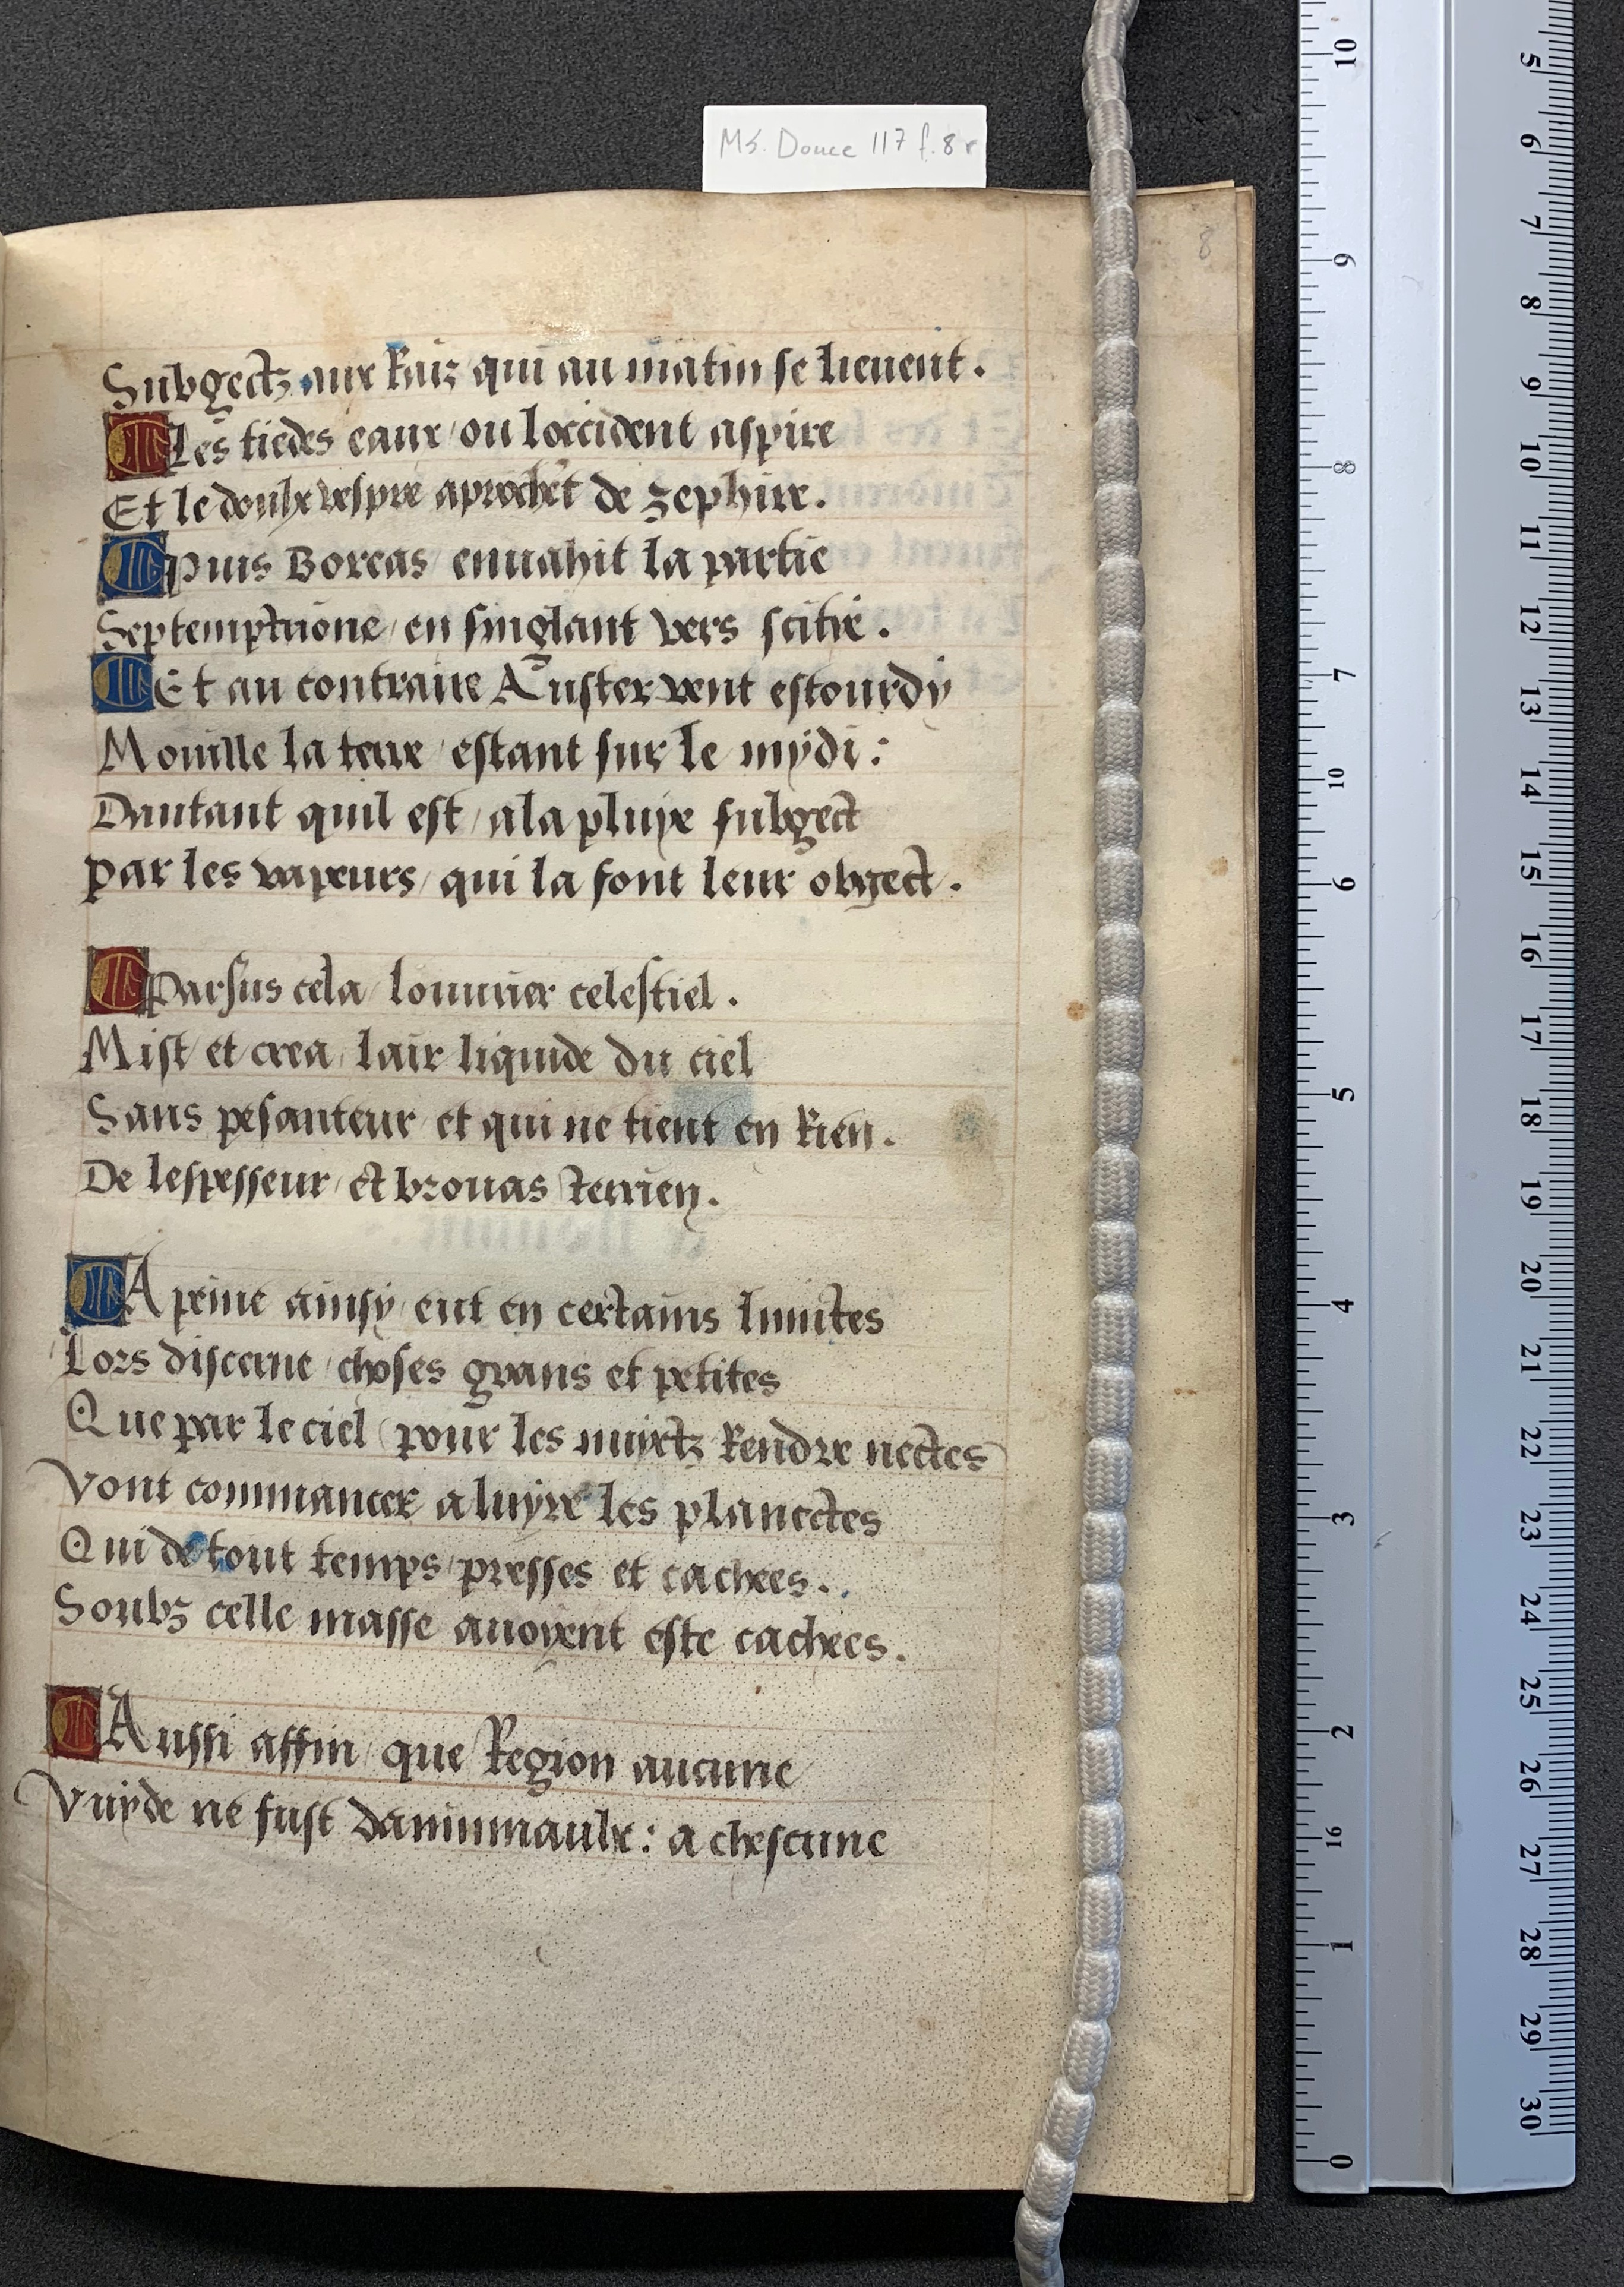 Ms. Douce 117 f. 8r
8
Subgectz aux Raiz qui au matin se lieuent.
Les tiedes eaux / ou loccident aspire
Et le doulx vespre aprochet de zephire.
puis Boreas / enuahit la partie
Septemptrione / en singlant vers scitie.
Et au contraire Auster vent estourdy
Mouille la terre / estant sur le mydi :
Dautant quil est / a la pluye subgect
par les vapeurs / qui la font leur obgect.
parsus cela / louurier celestiel.
Mist / et crea / lair liquide du ciel
Sans pesanteur / et qui ne tient en Rien.
De lespesseur / et brouas terrien.
A peine ainsy / eut en certains limites
Lors discerne / choses grans et petites
Que par le ciel / pour les nuyctz Rendre nectes
Vont commancer a luyre les planectes
Qui de tout temps / presses et cachees.
Soubz celle masse auoyent este cachees.
Aussi affin / que Region aucune
Vuyde ne fust danimaulx : a chescune
10
9
8
7
10
6
5
4
3
2
16
1
0
5
6
7
8
9
10
11
12
13
14
15
16
17
18
19
20
21
22
23
24
25
26
27
28
29
30